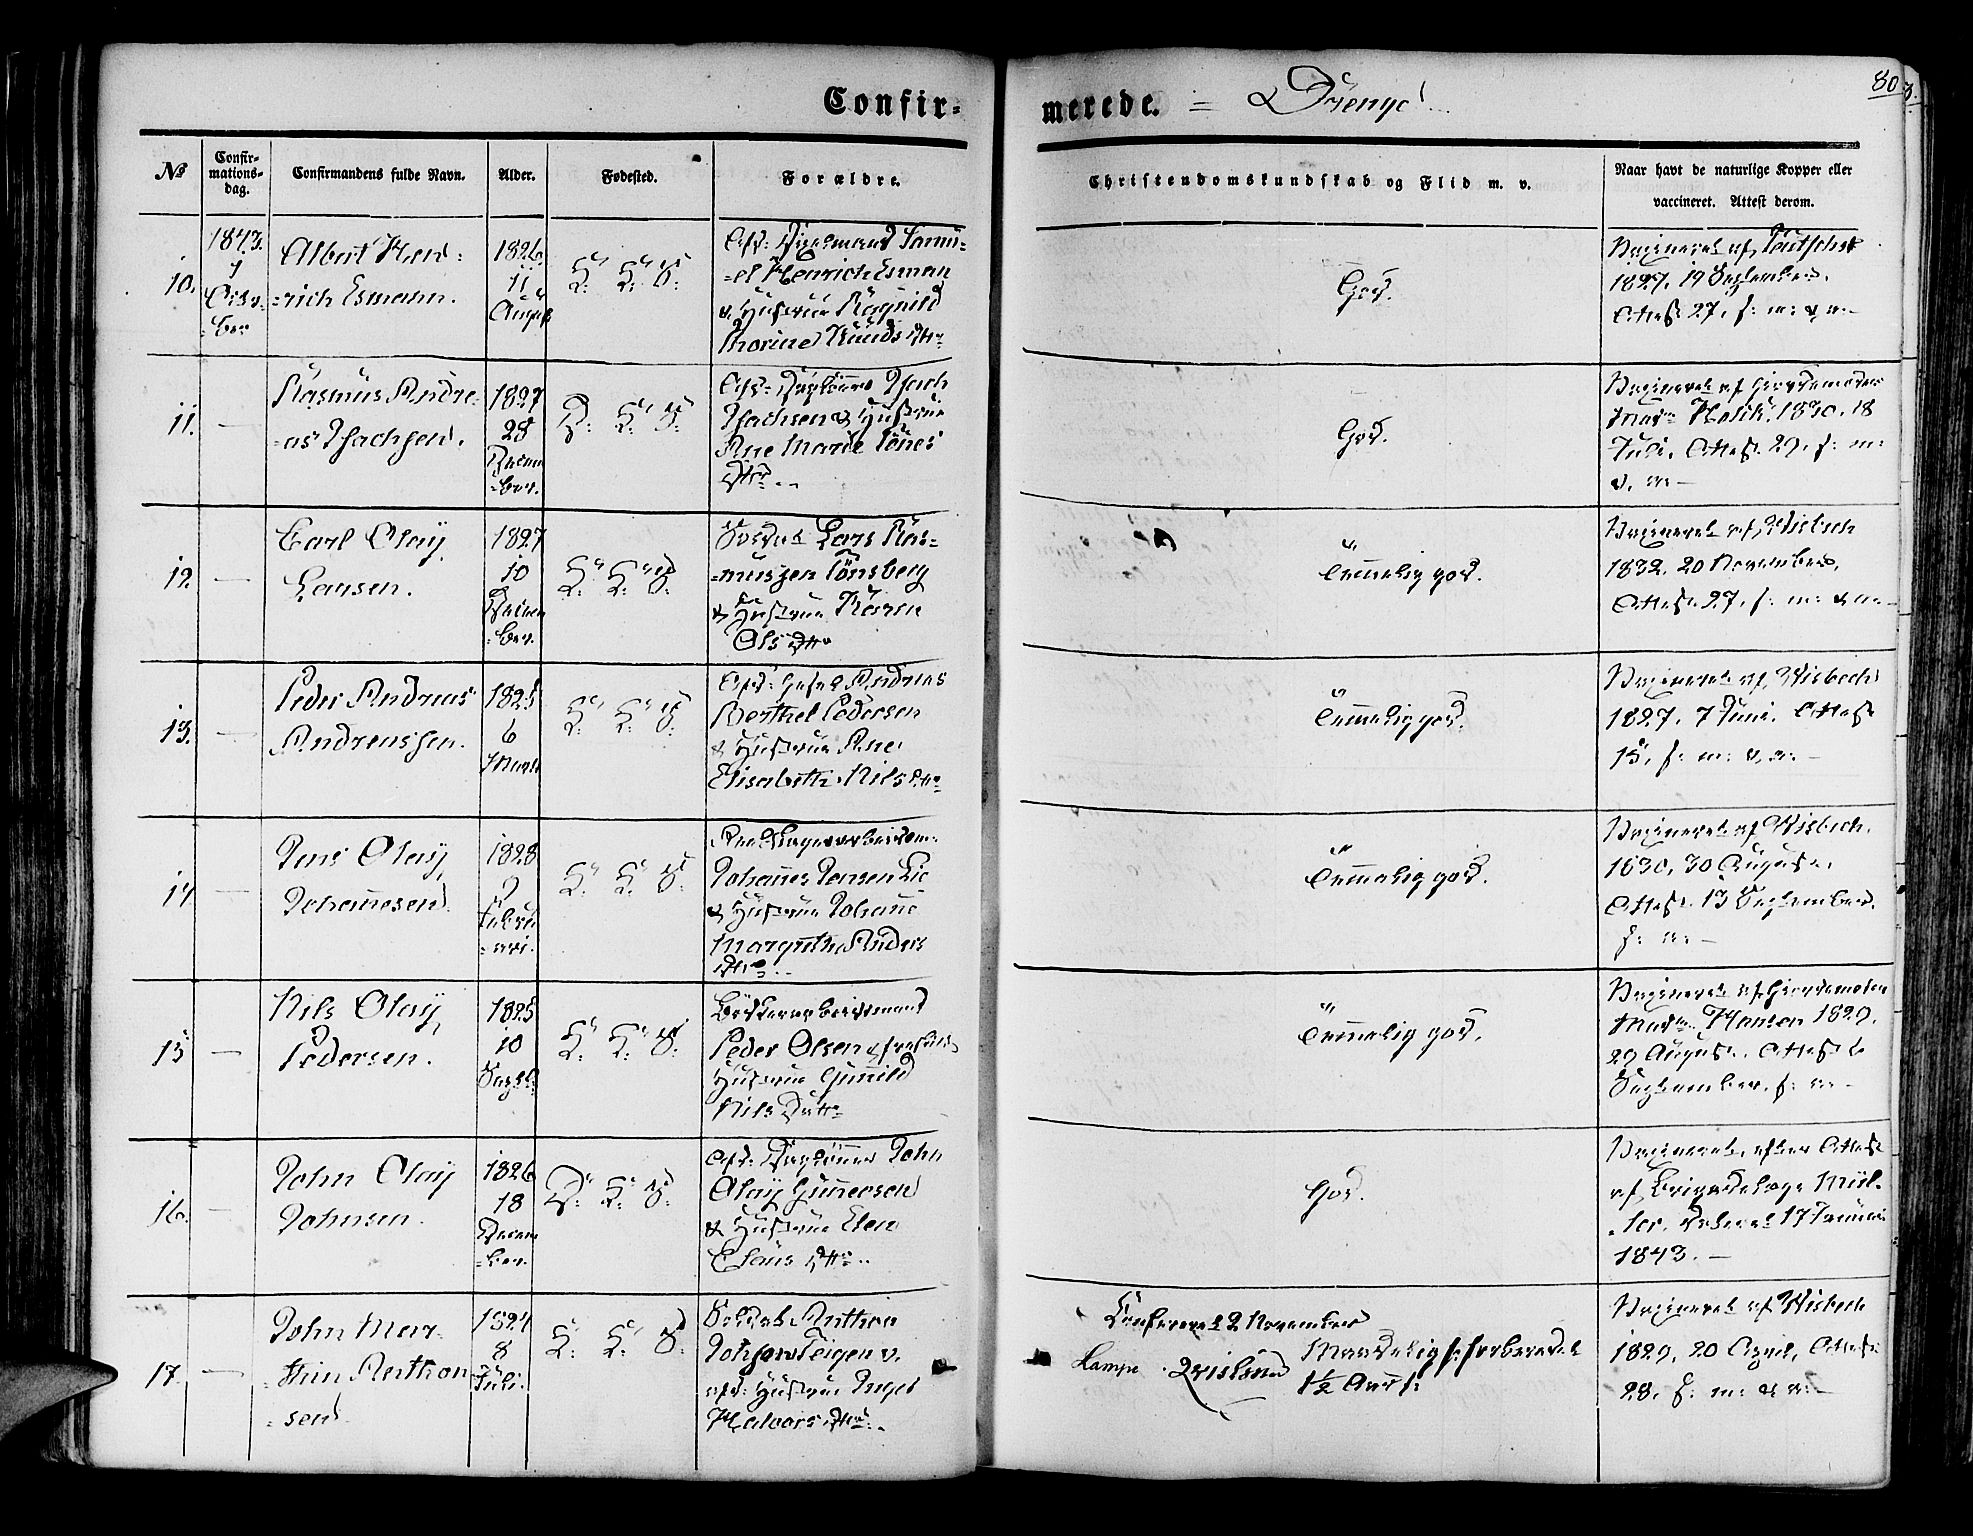 80
Confir= merede. = Drenge
№
Confir-
mations-
dag.
Confirmandens fulde Navn.
Alder.
Fødested.
Forældre.
Christendomskundskab og Flid m. v.
Naar havt de naturlige Kopper eller
vaccineret. Attest derom.
10.
1843.
1
Octo-
=ber
Albert Hen=
=rich Esmann.
1826
11
August
K: K: S:
Afd:
Samu=
=el Henrich Esman
& Hustrue Ragnild
Thorine Knuds Dtr
God.
Vaccineret af
1827. 19 September.
Attest 27. s: m: & a:
11.
Rasmus Andre=
=as Isachsen.
1827
28
Decem
=ber.
D: K: S:
Afd: Isach
Isachsen & Hustrue
Ane Marie Tønes
Dtr
God.
Vaccineret af Giordemoder
Mad. Holck. 1830. 18
Juli. Attest 29. s: m:
& a:
12.
Carl Olay
Larsen.
1827
10
Decem
=ber.
K: K: S:
Soldat Lars Ras=
=mussen Tønsberg
& Hustrue Karen
Ols Dtr
Temmelig god.
Vaccineret af Wisbech
1832. 20 November.
Attest 27. s: m: & a:
13.
Peder Andreas
Andreassen.
1825
6
Marts
K: K: S:
Afd: Andreas
Berthel Pedersen
& Hustrue Ane
Elisabeth Nils Dtr
Temmelig god.
Vaccineret af Wisbech
1827. 7 Juni. Attest
15. s: m: & a:
14
Jens Olay
Johannesen
1828
9
Febru
=ari.
K: K: S:
Johannes Jensen Lie
& Hustrue Johanne
Margrethe Anders
Dtr
Temmelig god.
Vaccineret af Wisbech.
1830. 30 August.
Attest 13 September.
s: a:
15
Nils Olay
Pedersen.
1825
10
Septbr
K: K: S:
Bødkerarbeidsmand
Peder Olsen &
Hustrue Gunild
Nils Dtr
Temmelig god.
Vaccineret af Giordemoder
Mad. Hansen 1829.
29 August. Attest 6
September. s: a:
16.
John Olay
Johnsen.
1826
18
Decem
=ber.
D: K: S:
Afd: John
Olay Gunersen
& Hustrue Elen
Claus Dtr
God.
Vaccineret efter Attest
af Brigadelæge Mül=
=ler. dateret 17 Januari
1843.
17.
John Mar=
=thin Anthon
=sen
1824
8
Juli.
K: K: S:
Soldat Anthon
Johnsen Teigen &
afd: Hustrue Inger
Halvors Dtr
Confirmeret 2 November
Lampe
Maadelig forberedet
1½ Aar
Vaccineret af Wisbech
1829. 20 April, Attest
28. s: m: & a: